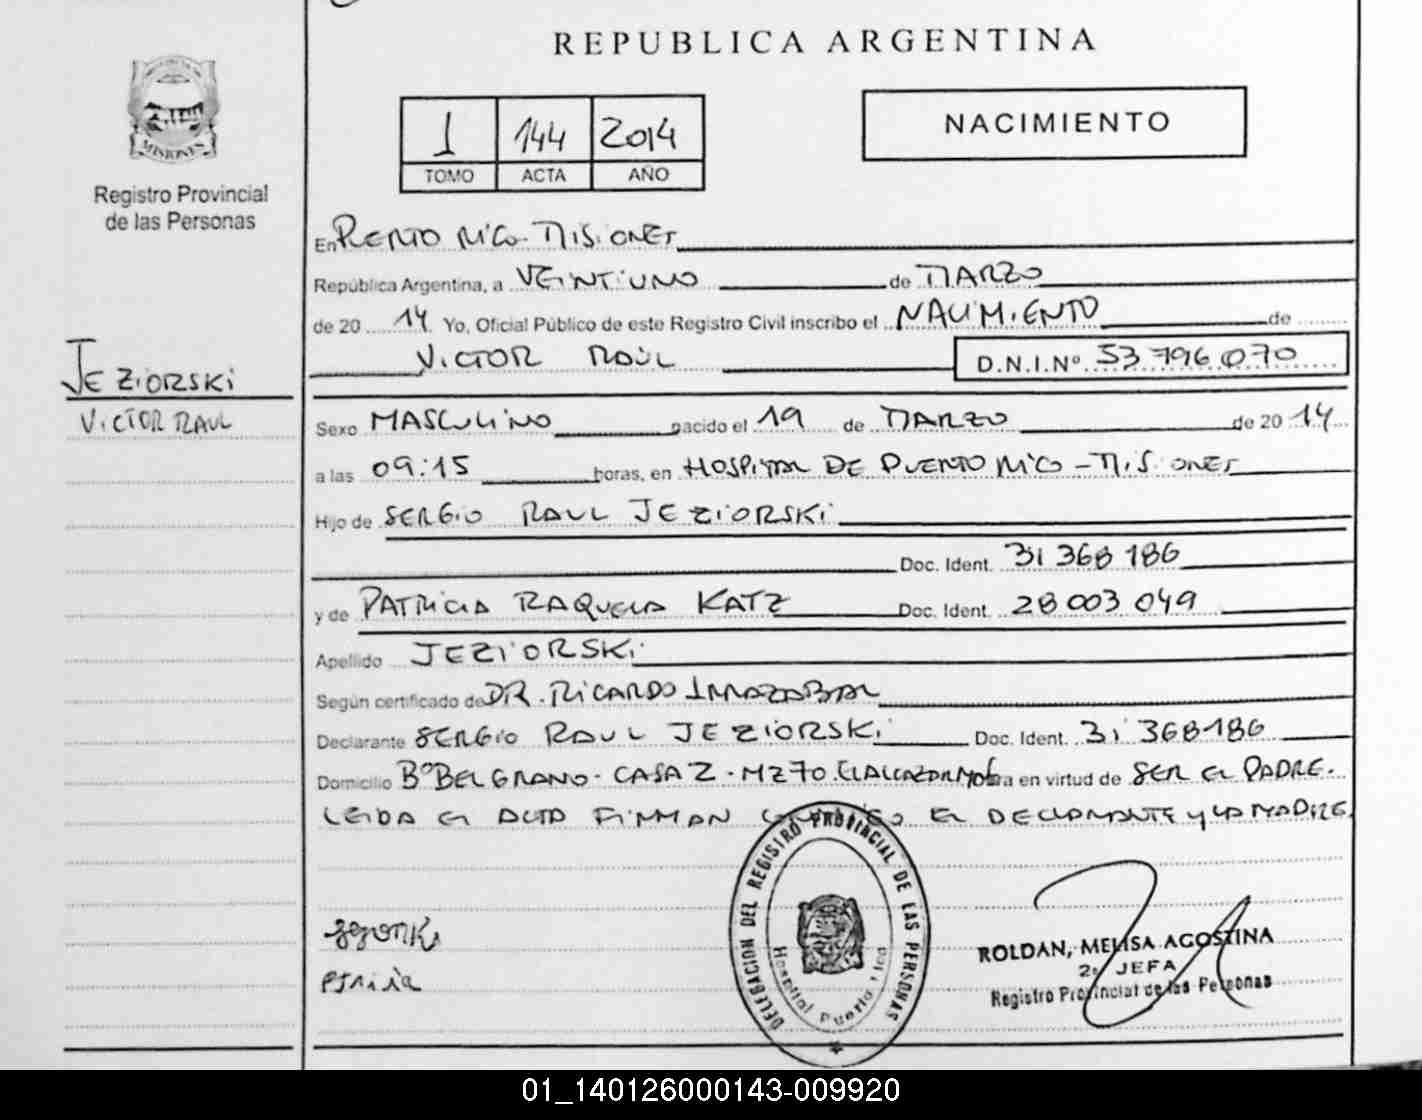 REPUBLICA ARGENTINA
1 144 2014
TOMO ACTA AÑO
NACIMIENTO
MISIONES
Registro Provincial
de las Personas
JEZIORSKI
VICTOR RAUL
En PUERTO RICO - MISIONES
República Argentina, a VEINTIUNO de MARZO
de 20 14 Yo, Oficial Público de este Registro Civil inscribo el NACIMIENTO de
VICTOR RAÚL D.N.I.Nº 53 796 070
Sexo MASCULINO nacido el 19 de MARZO de 20 14
a las 09:15 horas, en HOSPITAL DE PUERTO RICO - MISIONES
Hijo de SERGIO RAUL JEZIORSKI
Doc. Ident. 31 368 186
y de PATRICIA RAQUELA KATZ Doc. Ident. 28 003 049
Apellido JEZIORSKI
Según certificado de DR. RICARDO IRRAZABAL
Declarante SERGIO RAUL JEZIORSKI Doc. Ident. 31 368186
Domicilio BºBELGRANO - CASA 2 - MZ 70. EL ALCAZAR en virtud de SER EL PADRE.
LEIDA EL ACTA FIRMAN EL DECLARANTE y LA MADRE.
DELEGACION DEL REGISTRO PROVINCIAL DE LAS PERSONAS
Hospital Puerto Rico
ROLDAN, MELISA AGOSTINA
2ª JEFA
Registro Provincial de las Personas
01_140126000143-009920